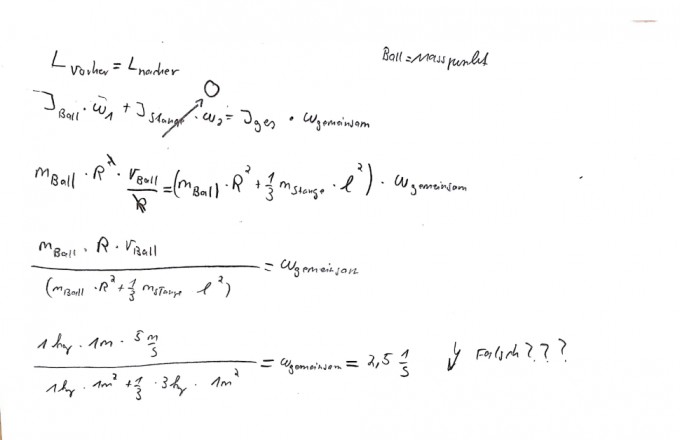 Ball = Masspunkt
L vorher = L nacher
J Ball · ω₁ + J Stange · ω₂ = J ges · ω gemeinsam
0
m Ball · R² · v Ball / R = (m Ball · R² + 1/3 m Stange · l²) · ω gemeinsam
m Ball · R · v Ball / (m Ball · R² + 1/3 m Stange l²) = ω gemeinsam
1 kg · 1m · 5 m/s / 1 kg · 1m² + 1/3 · 3 kg · 1m² = ω gemeinsam = 2,5 1/s Falsch???